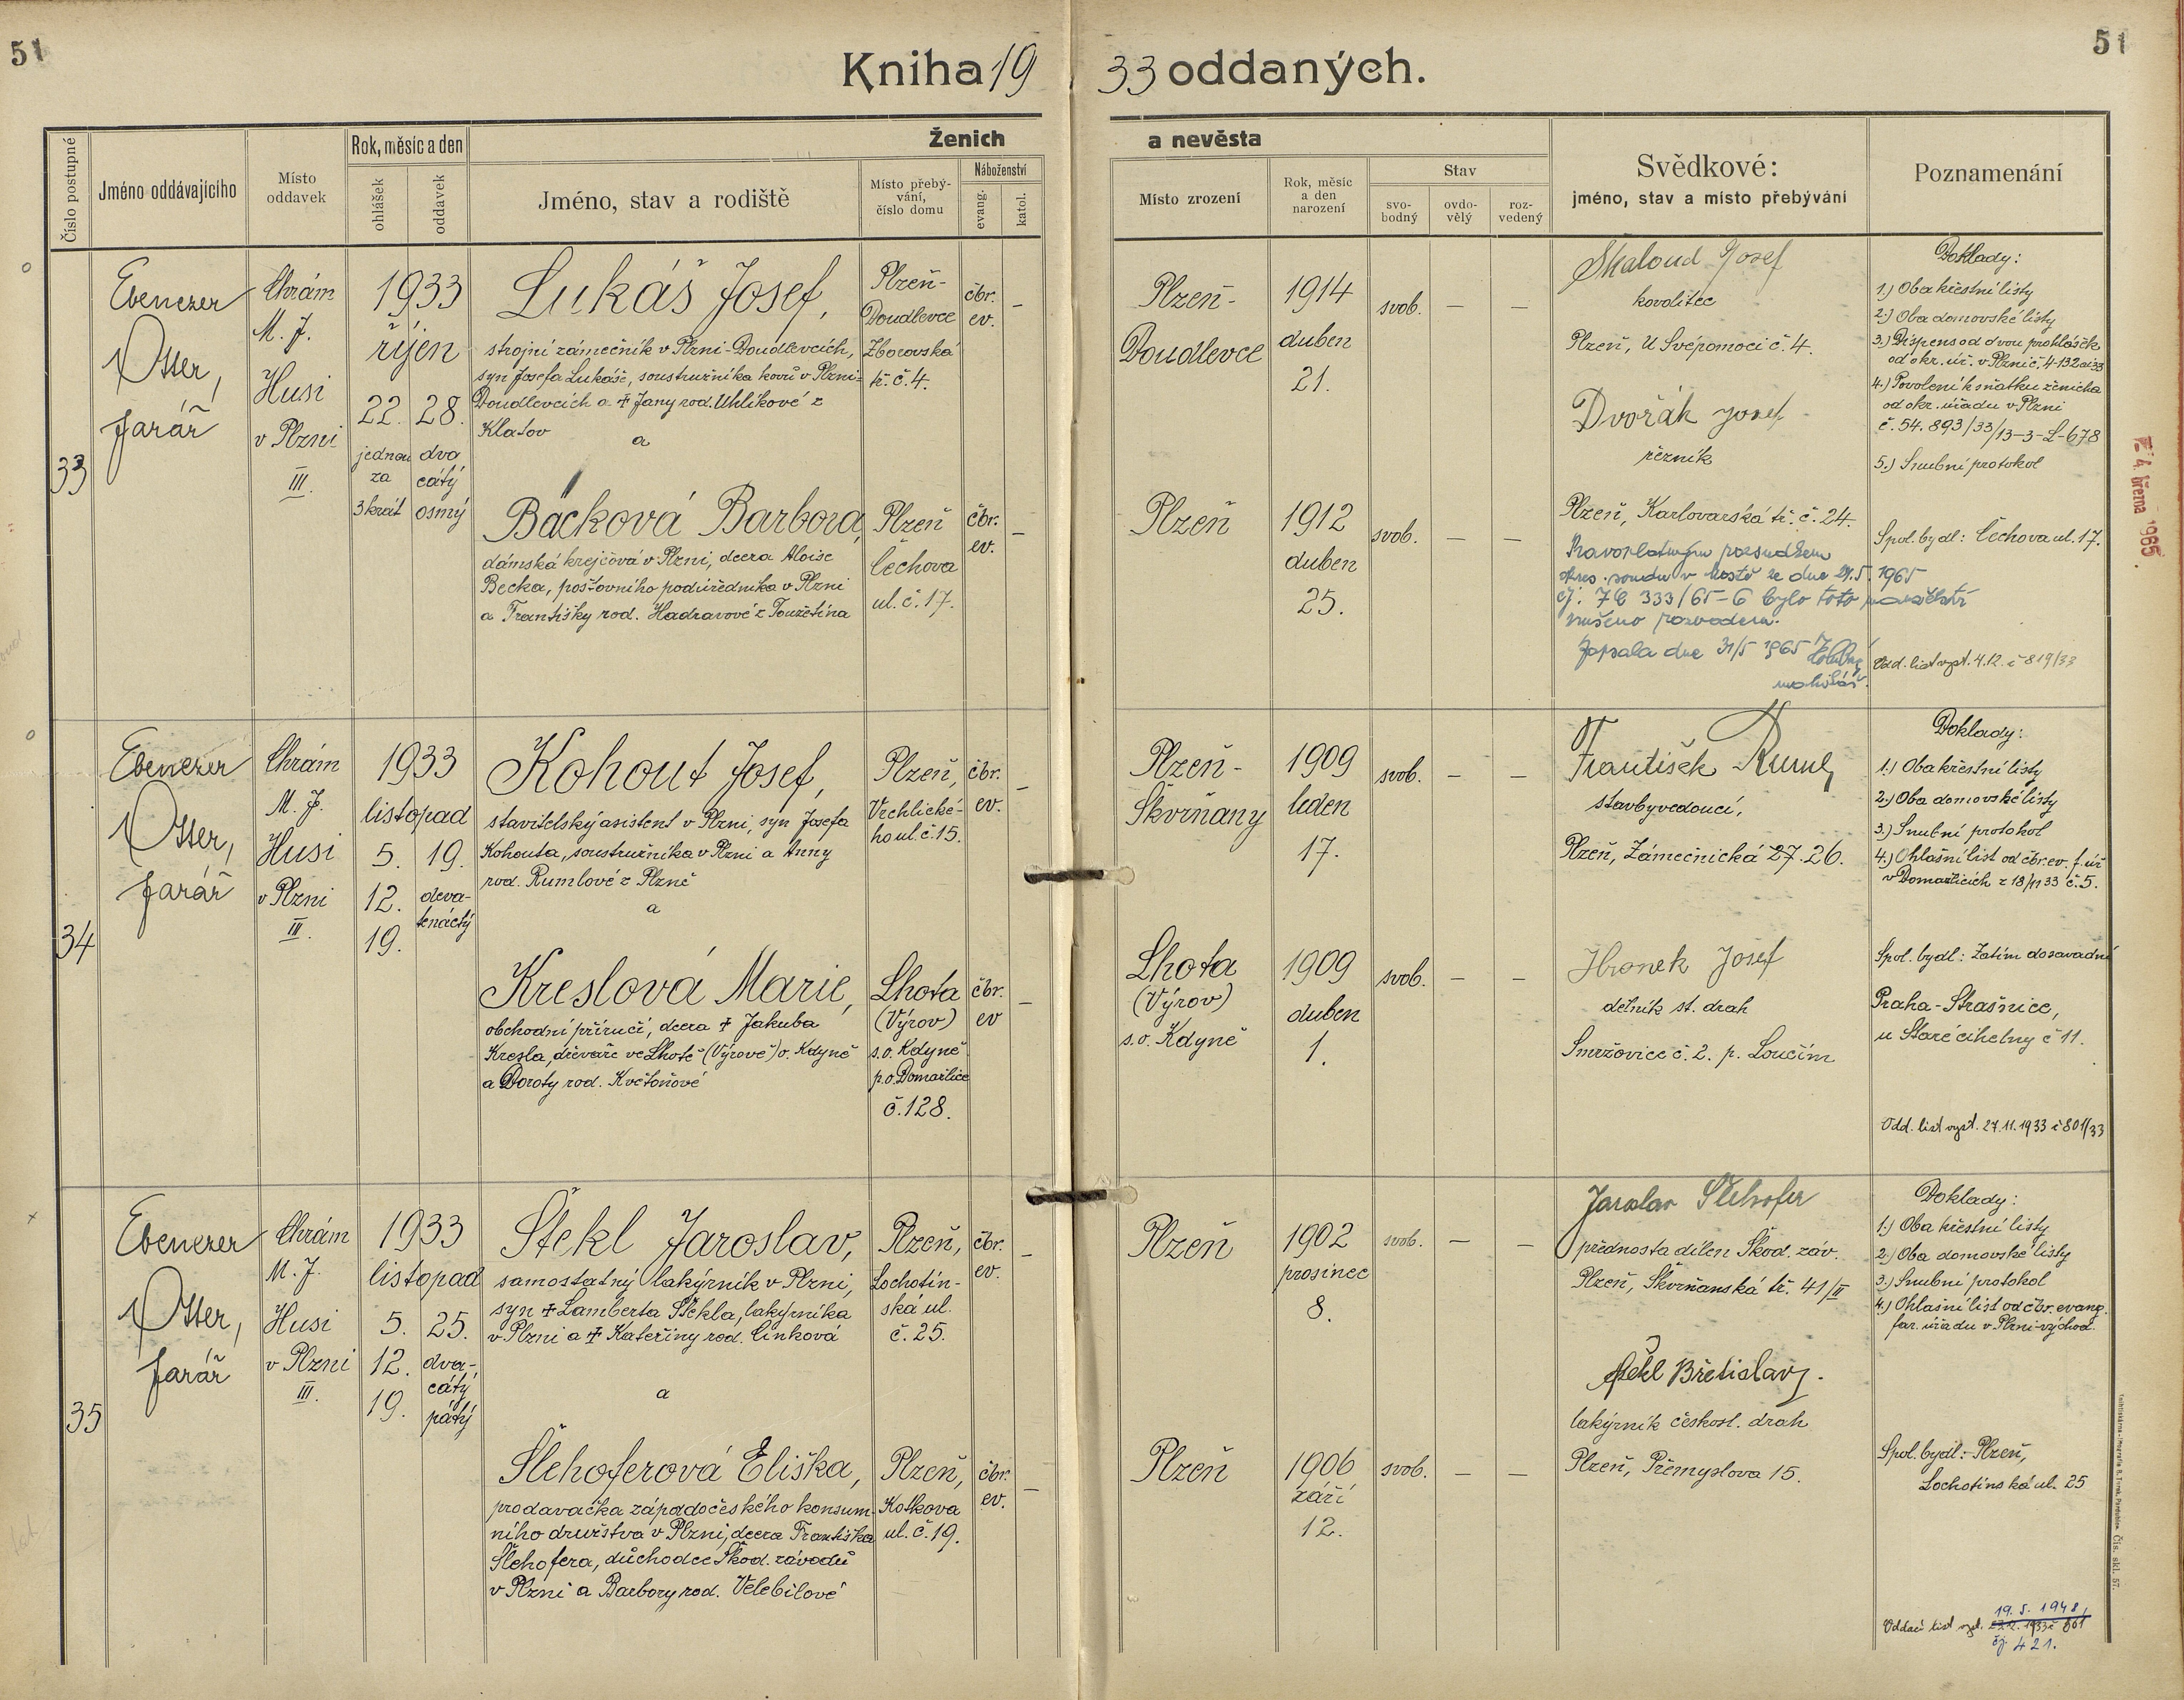 51
51
Kniha 19 33 oddaných.
Číslo postupné
Jméno oddávajícího
Místo
oddavek
Rok, měsíc a den
ohlášek
oddavek
Ženich
a nevěsta
Jméno, stav a rodiště
Místo přebý-
vání,
číslo domu
Náboženství
evang.
katol.
Místo zrození
Rok, měsíc
a den
narození
Stav
svo-
bodný
ovdo-
vělý
roz-
vedený
Svědkové:
jméno, stav a místo přebývání
Poznamenání
33
Ebenezer
Otter,
farář
Chrám
M. J.
Husi
v Plzni
III.
1933
říjen
22. 28.
jednou
za
3krát
dva
cátý
osmý
Lukáš Josef,
strojní zámečník v Plzni-Doudlevcích,
syn Josefa Lukáše, soustružníka kovů v Plzni-
Doudlevcích a ✝ Jany rod. Uhlíkové z
Klatov
a
Plzeň-
Doudlevce
Zborovská
tř. č. 4.
čbr.
ev.
–
Plzeň-
Doudlevce
1914
duben
21.
svob.
–
–
Skaloud Josef
kovolitec
Plzeň, U Svépomoci č. 4.
Dvořák Josef
řezník
Plzeň, Karlovarská tř. č. 24.
Bäcková Barbora,
dámská krejčová v Plzni, dcera Aloise
Becka, poštovního podúředníka v Plzni
a Františky rod. Hadravové z Toužetína
Plzeň
Čechova
ul. č. 17.
čbr.
ev.
–
Plzeň
1912
duben
25.
svob.
–
–
Pravoplatným rozsudkem
okres. soudu v Mostě ze dne 21.5. 1965
čj: 7C 333/65-6 bylo toto manželství
zrušeno rozvodem.
Zapsala dne 31/5 1965
Doklady:
1.) Oba křestní listy
2.) Oba domovské listy
3.) Dispens od dvou prohlášek
od okr. úř. v Plzni č. 4-132 ai 33
4.) Povolení k sňatku ženicha
od okr. úřadu v Plzni
č. 54.893/33/13-3-L-678
5.) Snubní protokol
Spol. bydl: Čechova ul. 17.
Odd. list vyst. 4.12. č 819/33
4. března 1965
34
Ebenezer
Otter,
farář
Chrám
M. J.
Husi
v Plzni
III.
1933
listopad
5. 19.
12.
19.
deva-
tenáctý
Kohout Josef,
stavitelský asistent v Plzni, syn Josefa
Kohouta, soustružníka v Plzni a Anny
rod. Rumlové z Plzně
a
Plzeň,
Vrchlické-
ho ul. č. 15.
čbr.
ev.
–
Plzeň-
Škvrňany
1909
leden
17.
svob.
–
–
František Ruml,
stavbyvedoucí,
Plzeň, Zámečnická 27. 26.
Kreslová Marie,
obchodní příručí, dcera ✝ Jakuba
Kresla, dřeváře ve Lhotě (Výrově) o. Kdyně
a Doroty rod. Květoňové
Lhota
(Výrov)
s.o. Kdyně
p.o. Domažlice
č. 128.
čbr.
ev
–
Lhota
(Výrov)
s.o. Kdyně
1909
duben
1.
svob.
–
–
Hronek Josef
dělník st. drah
Smržovice č. 2. p. Loučim
Doklady:
1.) Oba křestní listy
2.) Oba domovské listy
3.) Snubní protokol
4.) Ohlašní list od čbr. ev. f. úř
v Domažlicích z 18/11 33 č. 5.
Spol. bydl: Zatím dosavadní
Praha-Strašnice,
u Staré cihelny č 11.
Odd. list vyst. 27.11.1933 č 801/33
35
Ebenezer
Otter,
farář
Chrám
M. J.
Husi
v Plzni
III.
1933
listopad
5. 25.
12.
19.
dva-
cátý
pátý
Štekl Jaroslav,
samostatný lakýrník v Plzni,
syn ✝ Lamberta Štekla, lakýrníka
v Plzni a ✝ Kateřiny rod. Cinková
a
Plzeň,
Lochotín-
ská ul.
č. 25.
čbr.
ev.
–
Plzeň
1902
prosinec
8.
svob.
–
–
Jaroslav Šlehofer
přednosta dílen Škod. záv.
Plzeň, Škvrňanská tř. 41/II
Štekl Břetislav.
lakýrník českosl. drah
Plzeň, Přemyslova 15.
Šlehoferová Eliška,
prodavačka západočeského konsum-
ního družstva v Plzni, dcera Františka
Šlehofera, důchodce Škod. závodů
v Plzni a Barbory rod. Velebilové
Plzeň,
Kotkova
ul. č. 19.
čbr.
ev.
–
Plzeň
1906
září
12.
svob.
–
–
Doklady:
1.) Oba křestní listy
2.) Oba domovské listy
3.) Snubní protokol
4.) Ohlašní list od čbr. evang.
far. úřadu v Plzni-východ.
Spol. bydl: Plzeň,
Lochotínská ul. 25
19. 5. 1948,
Oddací list vyst.
čj 421.
Čís. skl. 57.